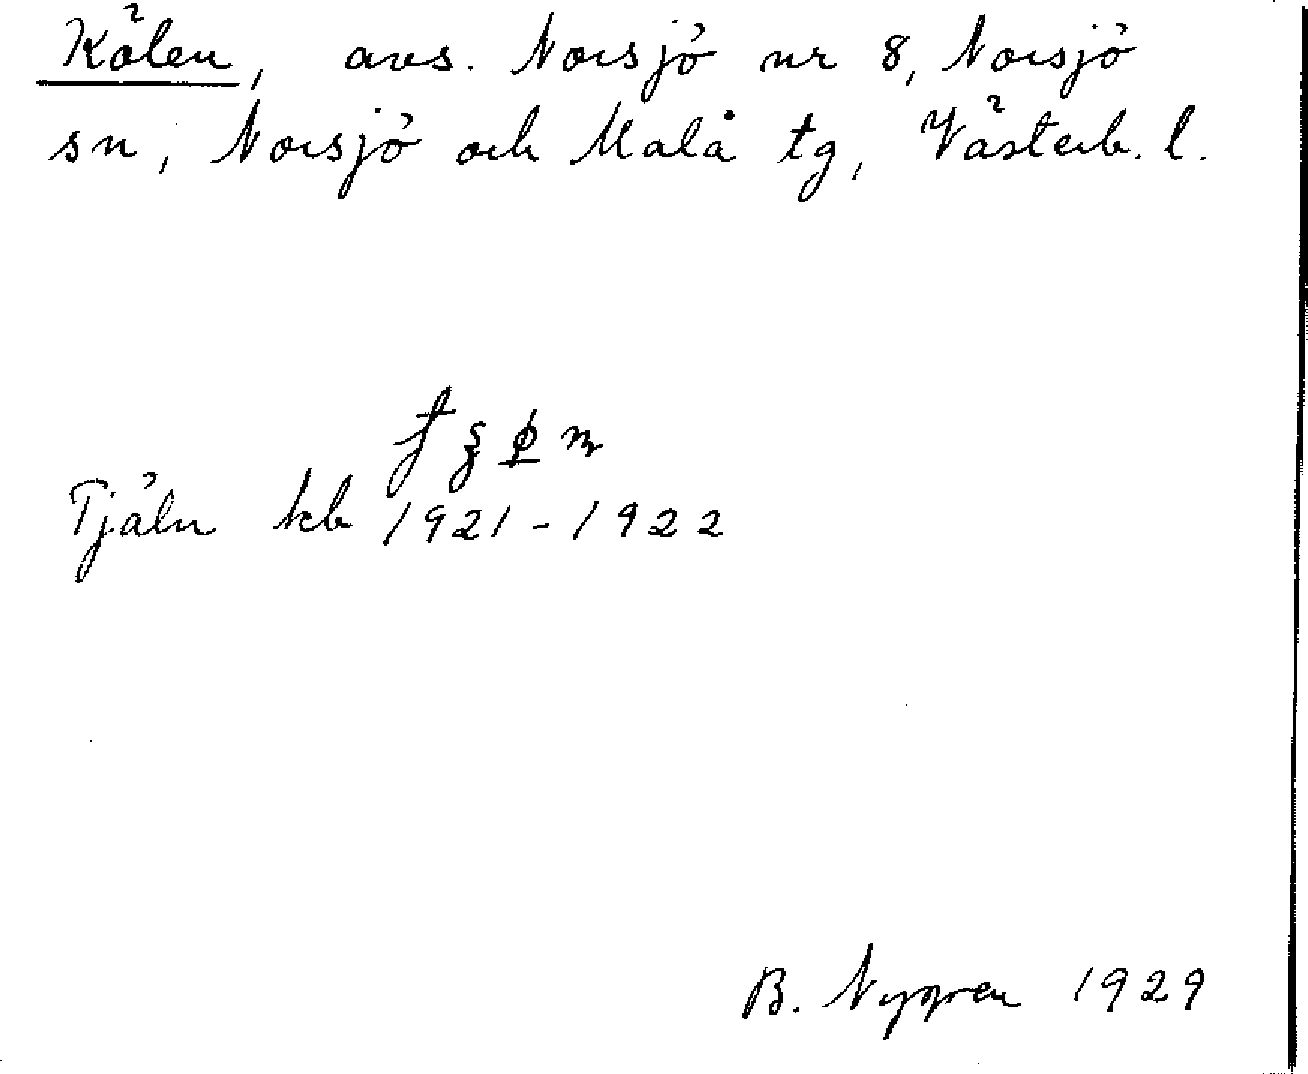 Kälen, avs. Norsjö nr 8, Norsjö
sn, Norsjö och Malå tg, Västerb. l.
Tjäln kb 1921-1922
B. Nygren 1929